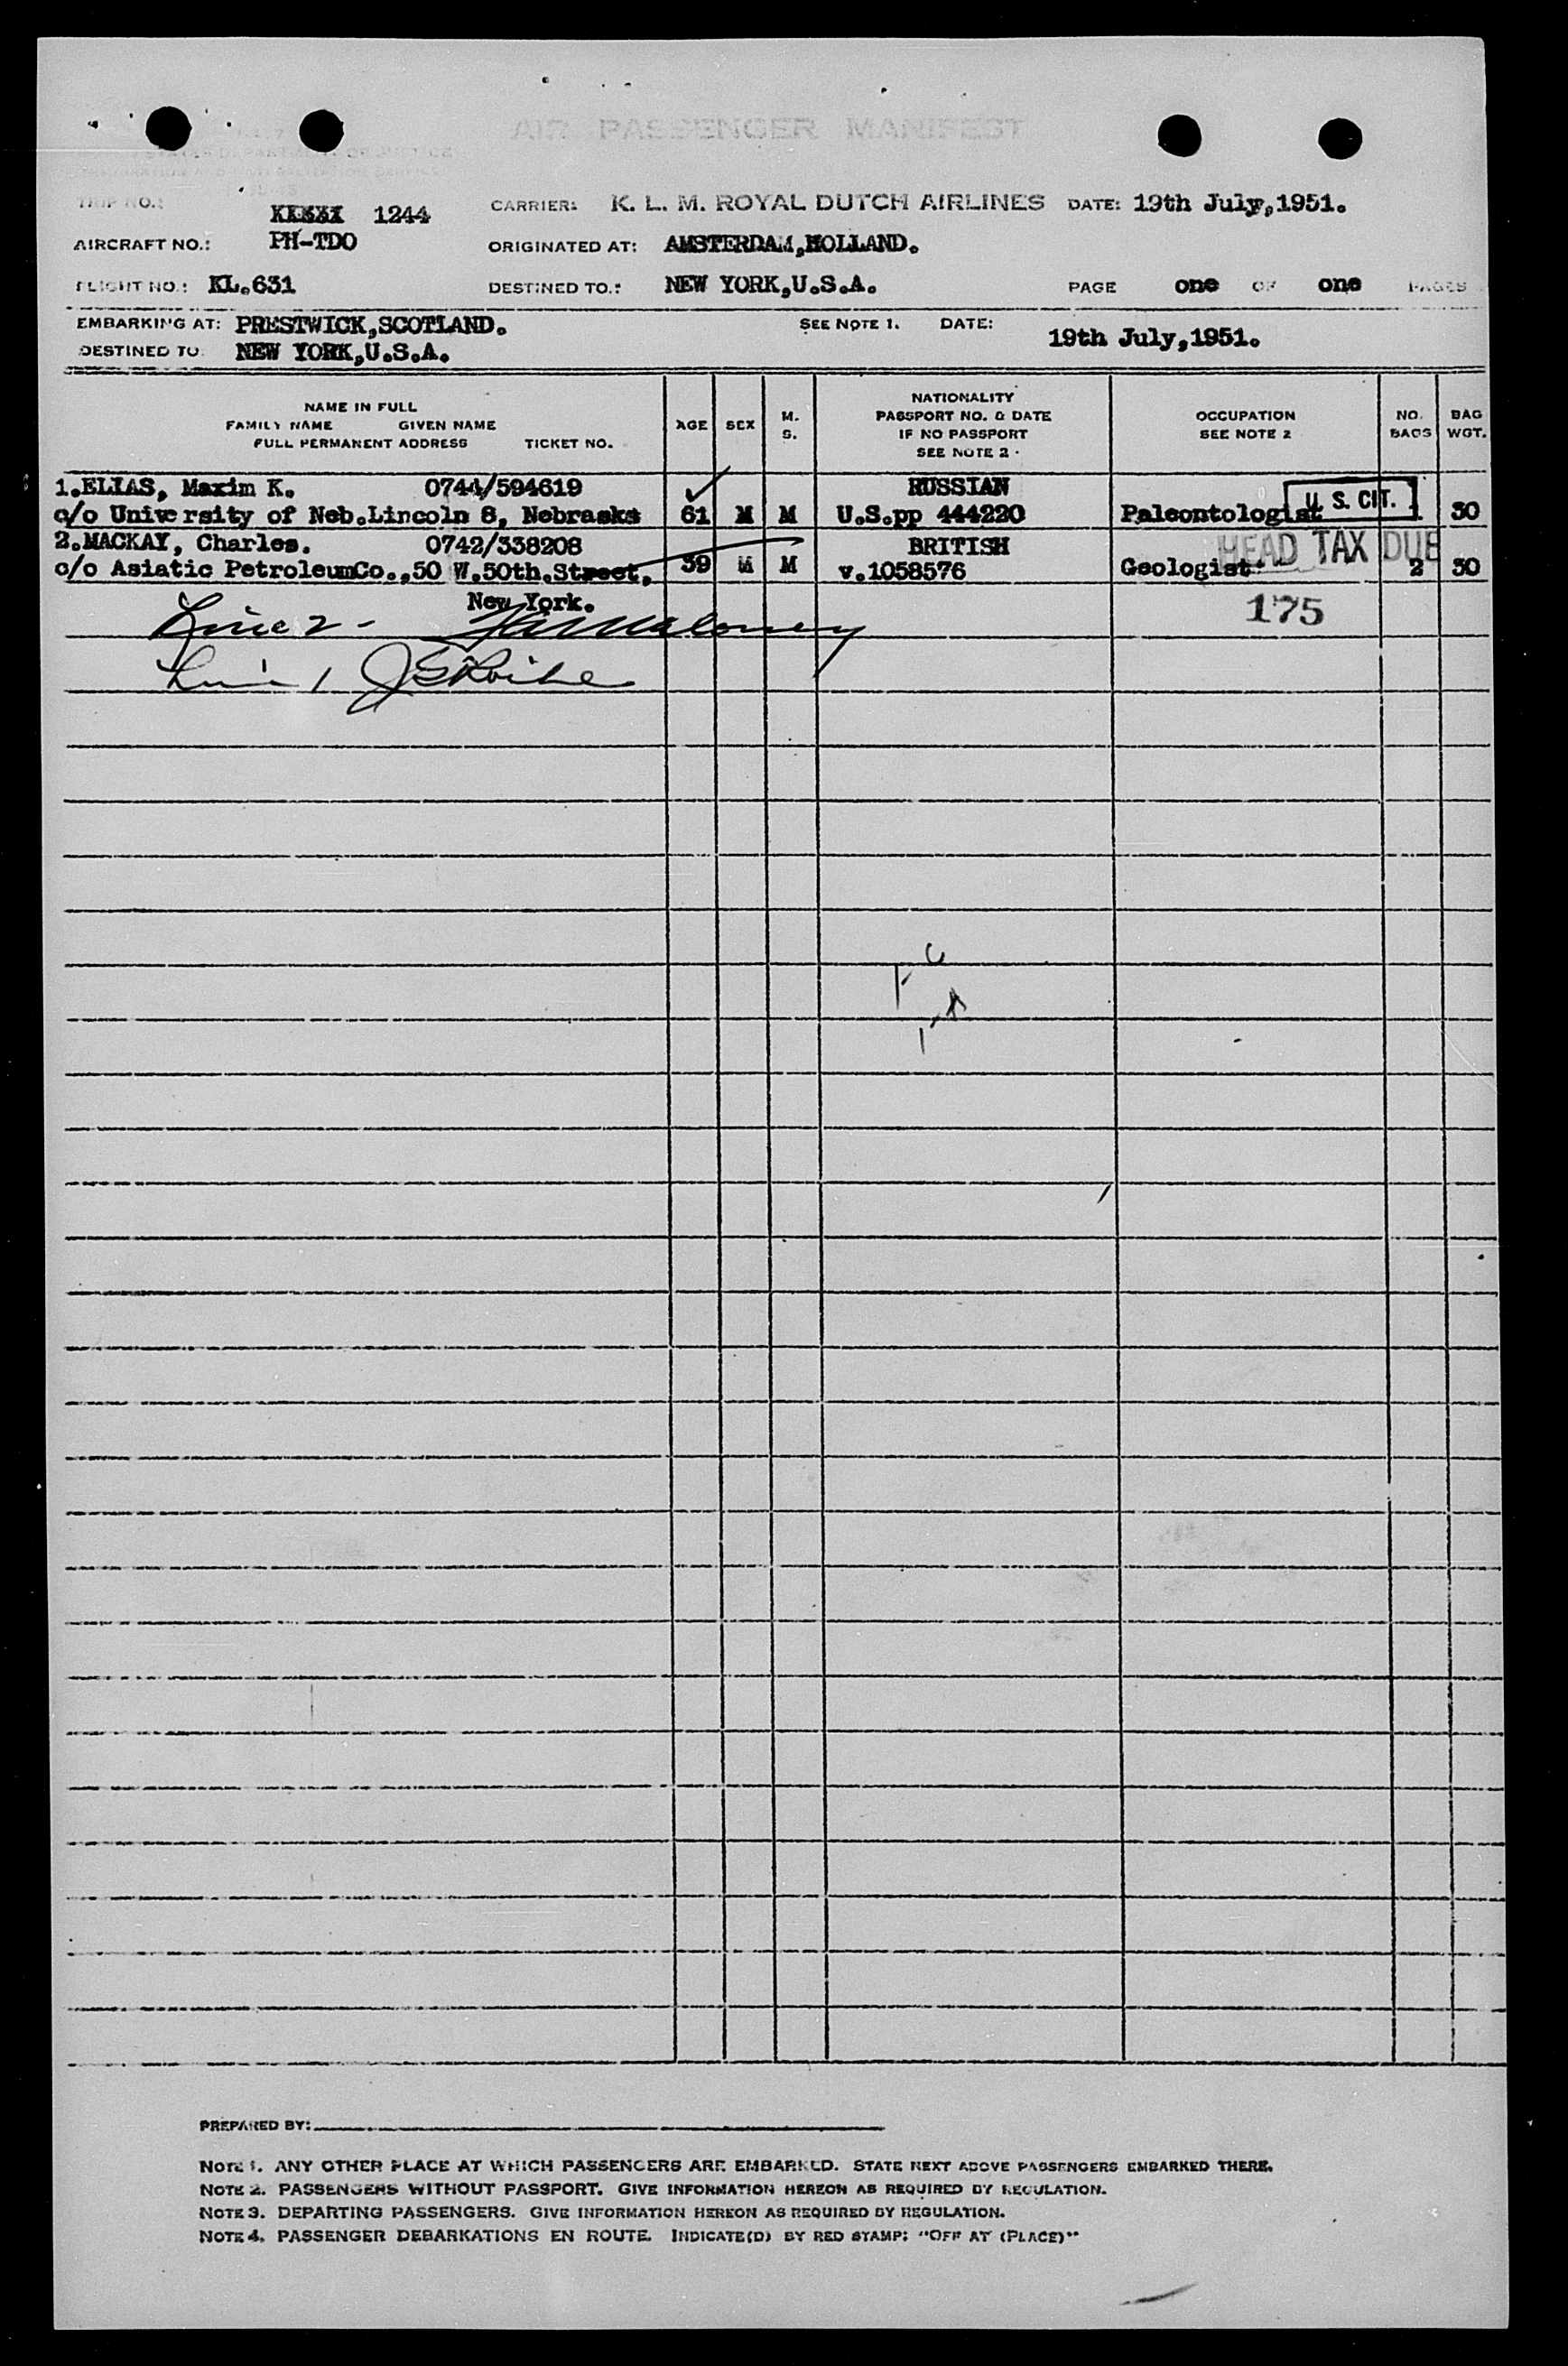 AIR PASSENGER MANIFEST
TRIP NO.: 1244 CARRIER: K. L. M. ROYAL DUTCH AIRLINES DATE: 19th July,1951.
AIRCRAFT NO.: PH-TDO ORIGINATED AT: AMSTERDAM,HOLLAND.
FLIGHT NO.: KL.631 DESTINED TO.: NEW YORK,U.S.A. PAGE one OF one PAGES
EMBARKING AT: PRESTWICK,SCOTLAND. SEE NOTE 1. DATE: 19th July,1951.
DESTINED TO: NEW YORK,U.S.A.
NAME IN FULL
FAMILY NAME GIVEN NAME
FULL PERMANENT ADDRESS TICKET NO.
AGE SEX M. S.
NATIONALITY
PASSPORT NO. & DATE
IF NO PASSPORT
SEE NOTE 2
OCCUPATION
SEE NOTE 2
NO. BAGS
BAG WGT.
1.ELIAS, Maxim K. 0744/594619 RUSSIAN U. S. CIT.
c/o University of Neb.Lincoln 8, Nebraska 61 M M U.S.pp 444220 Paleontologist 30
2.MACKAY, Charles. 0742/338208 BRITISH HEAD TAX DUE
c/o Asiatic PetroleumCo.,50 W.50th.Street, 39 M M v.1058576 Geologist 2 30
New York. 175
Line 2 - Maloney
Line 1
PREPARED BY:
NOTE 1. ANY OTHER PLACE AT WHICH PASSENGERS ARE EMBARKED. STATE NEXT ABOVE PASSENGERS EMBARKED THERE.
NOTE 2. PASSENGERS WITHOUT PASSPORT. GIVE INFORMATION HEREON AS REQUIRED BY REGULATION.
NOTE 3. DEPARTING PASSENGERS. GIVE INFORMATION HEREON AS REQUIRED BY REGULATION.
NOTE 4. PASSENGER DEBARKATIONS EN ROUTE. INDICATE(D) BY RED STAMP: "OFF AT (PLACE)"